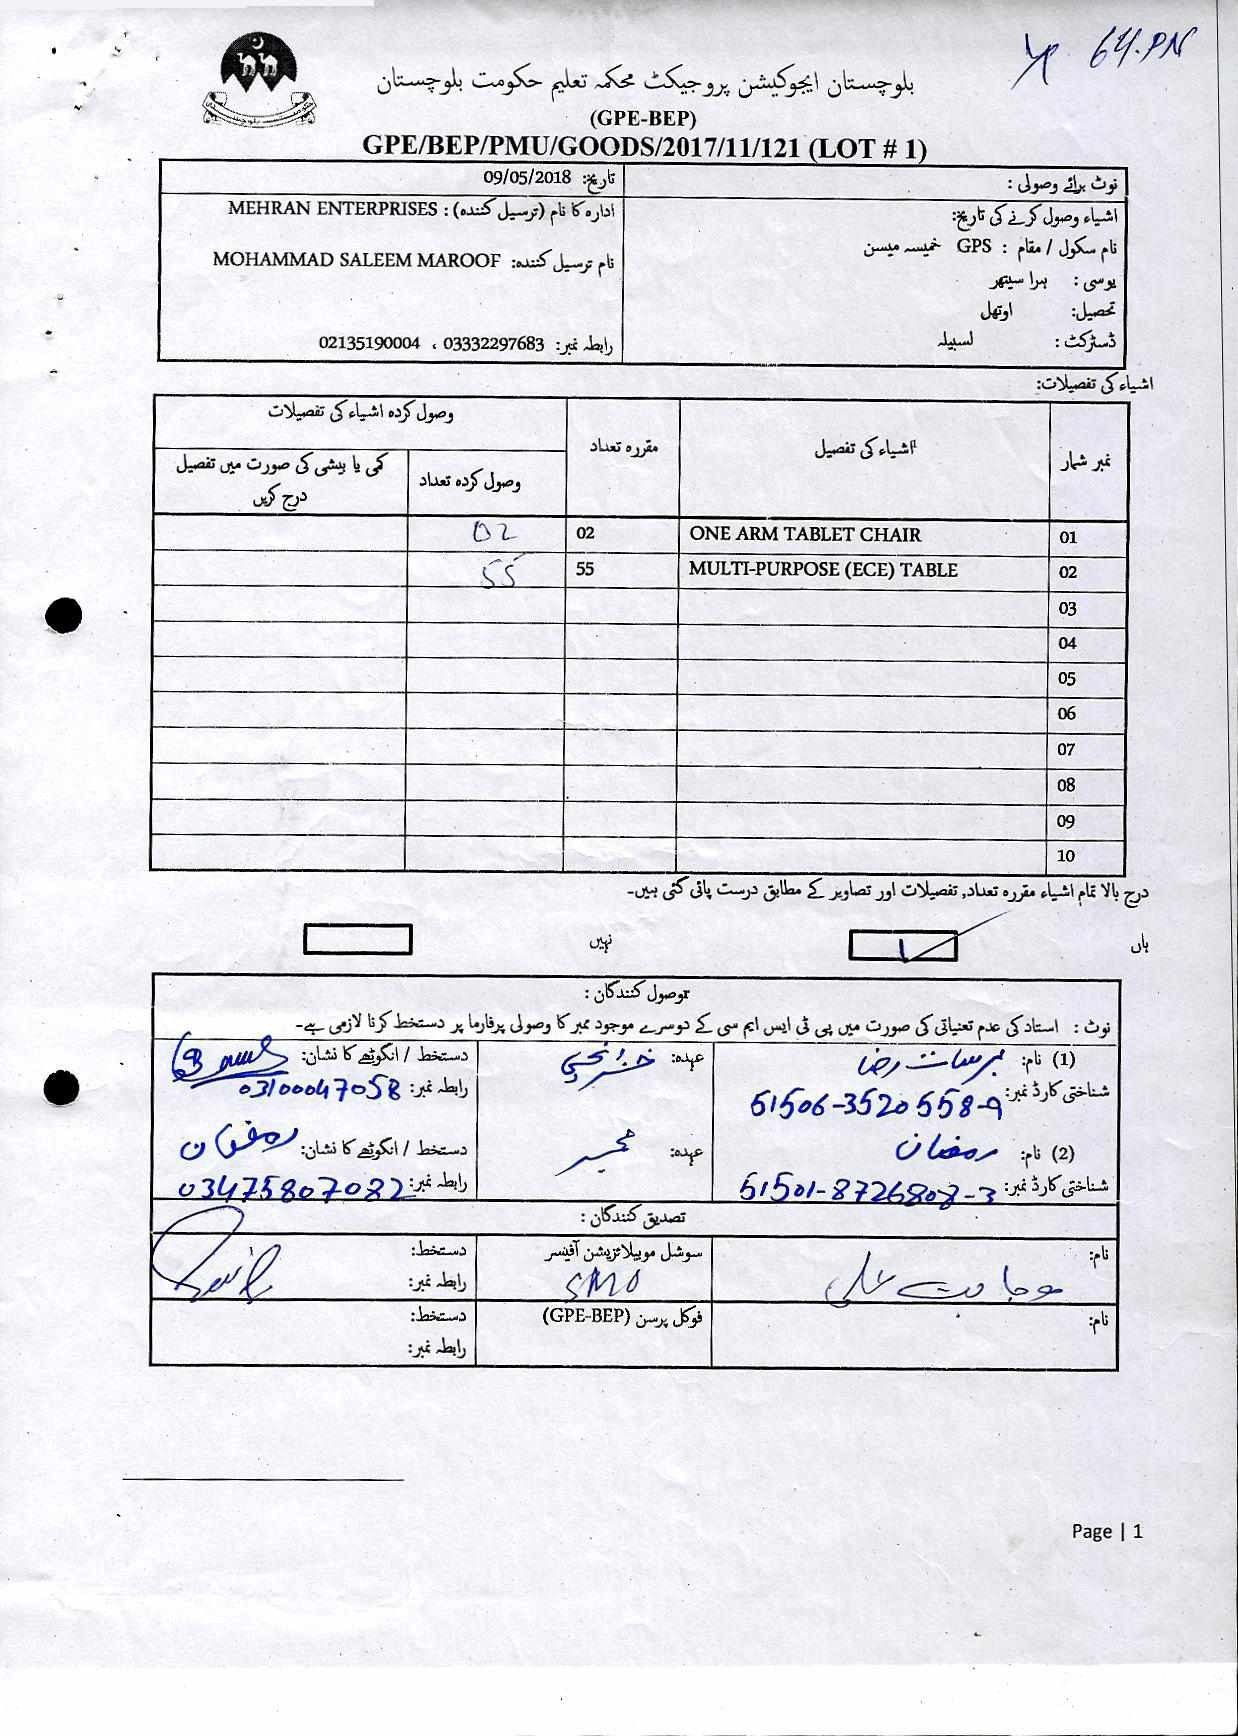 64.PN
بلوچستان ایجوکیشن پروجیکٹ محکمہ تعلیم حکومت بلوچستان
(GPE-BEP)
GPE/BEP/PMU/GOODS/2017/11/121 (LOT # 1)
نوٹ برائے وصولی :
تاریخ: 09/05/2018
اشیاء وصول کرنے کی تاریخ:
نام سکول / مقام : GPS خمیسہ میسن
یوسی : ہرا سیتھر
تحصیل: اوتھل
ڈسٹرکٹ : لسبیلہ
ادارہ کا نام (ترسیل کنندہ) : MEHRAN ENTERPRISES
نام ترسیل کنندہ: MOHAMMAD SALEEM MAROOF
رابطہ نمبر: 03332297683 ، 02135190004
اشیاء کی تفصیلات:
نمبر شمار اشیاء کی تفصیل مقررہ تعداد وصول کردہ اشیاء کی تفصیلات
وصول کردہ تعداد کمی یا بیشی کی صورت میں تفصیل درج کریں
01 ONE ARM TABLET CHAIR 02 02
02 MULTI-PURPOSE (ECE) TABLE 55 55
03
04
05
06
07
08
09
10
درج بالا تمام اشیاء مقررہ تعداد, تفصیلات اور تصاویر کے مطابق درست پائی گئی ہیں۔
ہاں نہیں
وصول کنندگان :
نوٹ : استاد کی عدم تعنیاتی کی صورت میں پی ٹی ایس ایم سی کے دوسرے موجود ممبر کا وصولی پرفارما پر دستخط کرنا لازمی ہے۔
(1) نام: رضا عہدہ: خزانچی دستخط / انگوٹھے کا نشان:
شناختی کارڈ نمبر: 51506-3520558-9 رابطہ نمبر: 03100047058
(2) نام: رمضان عہدہ: ممبر دستخط / انگوٹھے کا نشان: رمضان
شناختی کارڈ نمبر: 51501-8726808-3 رابطہ نمبر: 03475807082
تصدیق کنندگان :
نام: وجاہت علی سوشل موبیلائزیشن آفیسر دستخط:
SMO رابطہ نمبر:
نام: فوکل پرسن (GPE-BEP) دستخط:
رابطہ نمبر:
Page | 1